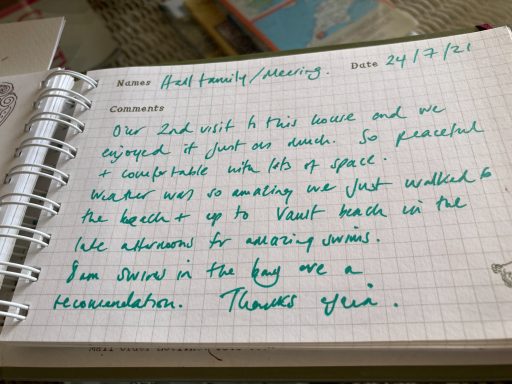 Names Hall family/Meering. Date 24/7/21
Comments
Our 2nd visit to this house and we
enjoyed it just as much. So peaceful
+ comfortable with lots of space.
Weather was so amazing we just walked to
the beach + up to Vault beach in the
late afternoons for amazing swims.
8am swims in the bay are a
recomendation. Thanks